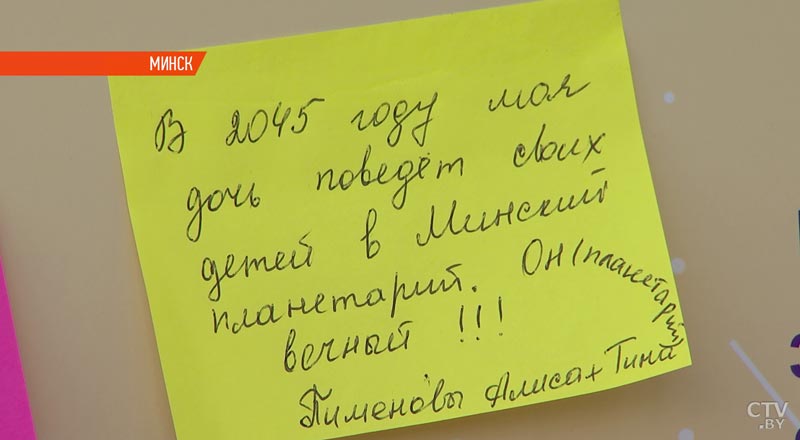 МИНСК
В 2045 году моя
дочь поведёт своих
детей в Минский
планетарий. Он (планетарий)
вечный !!!
Пименовы Алиса + Тина
CTV
.BY